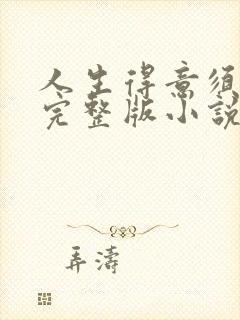 人生得意須
完整版小說
弄濤